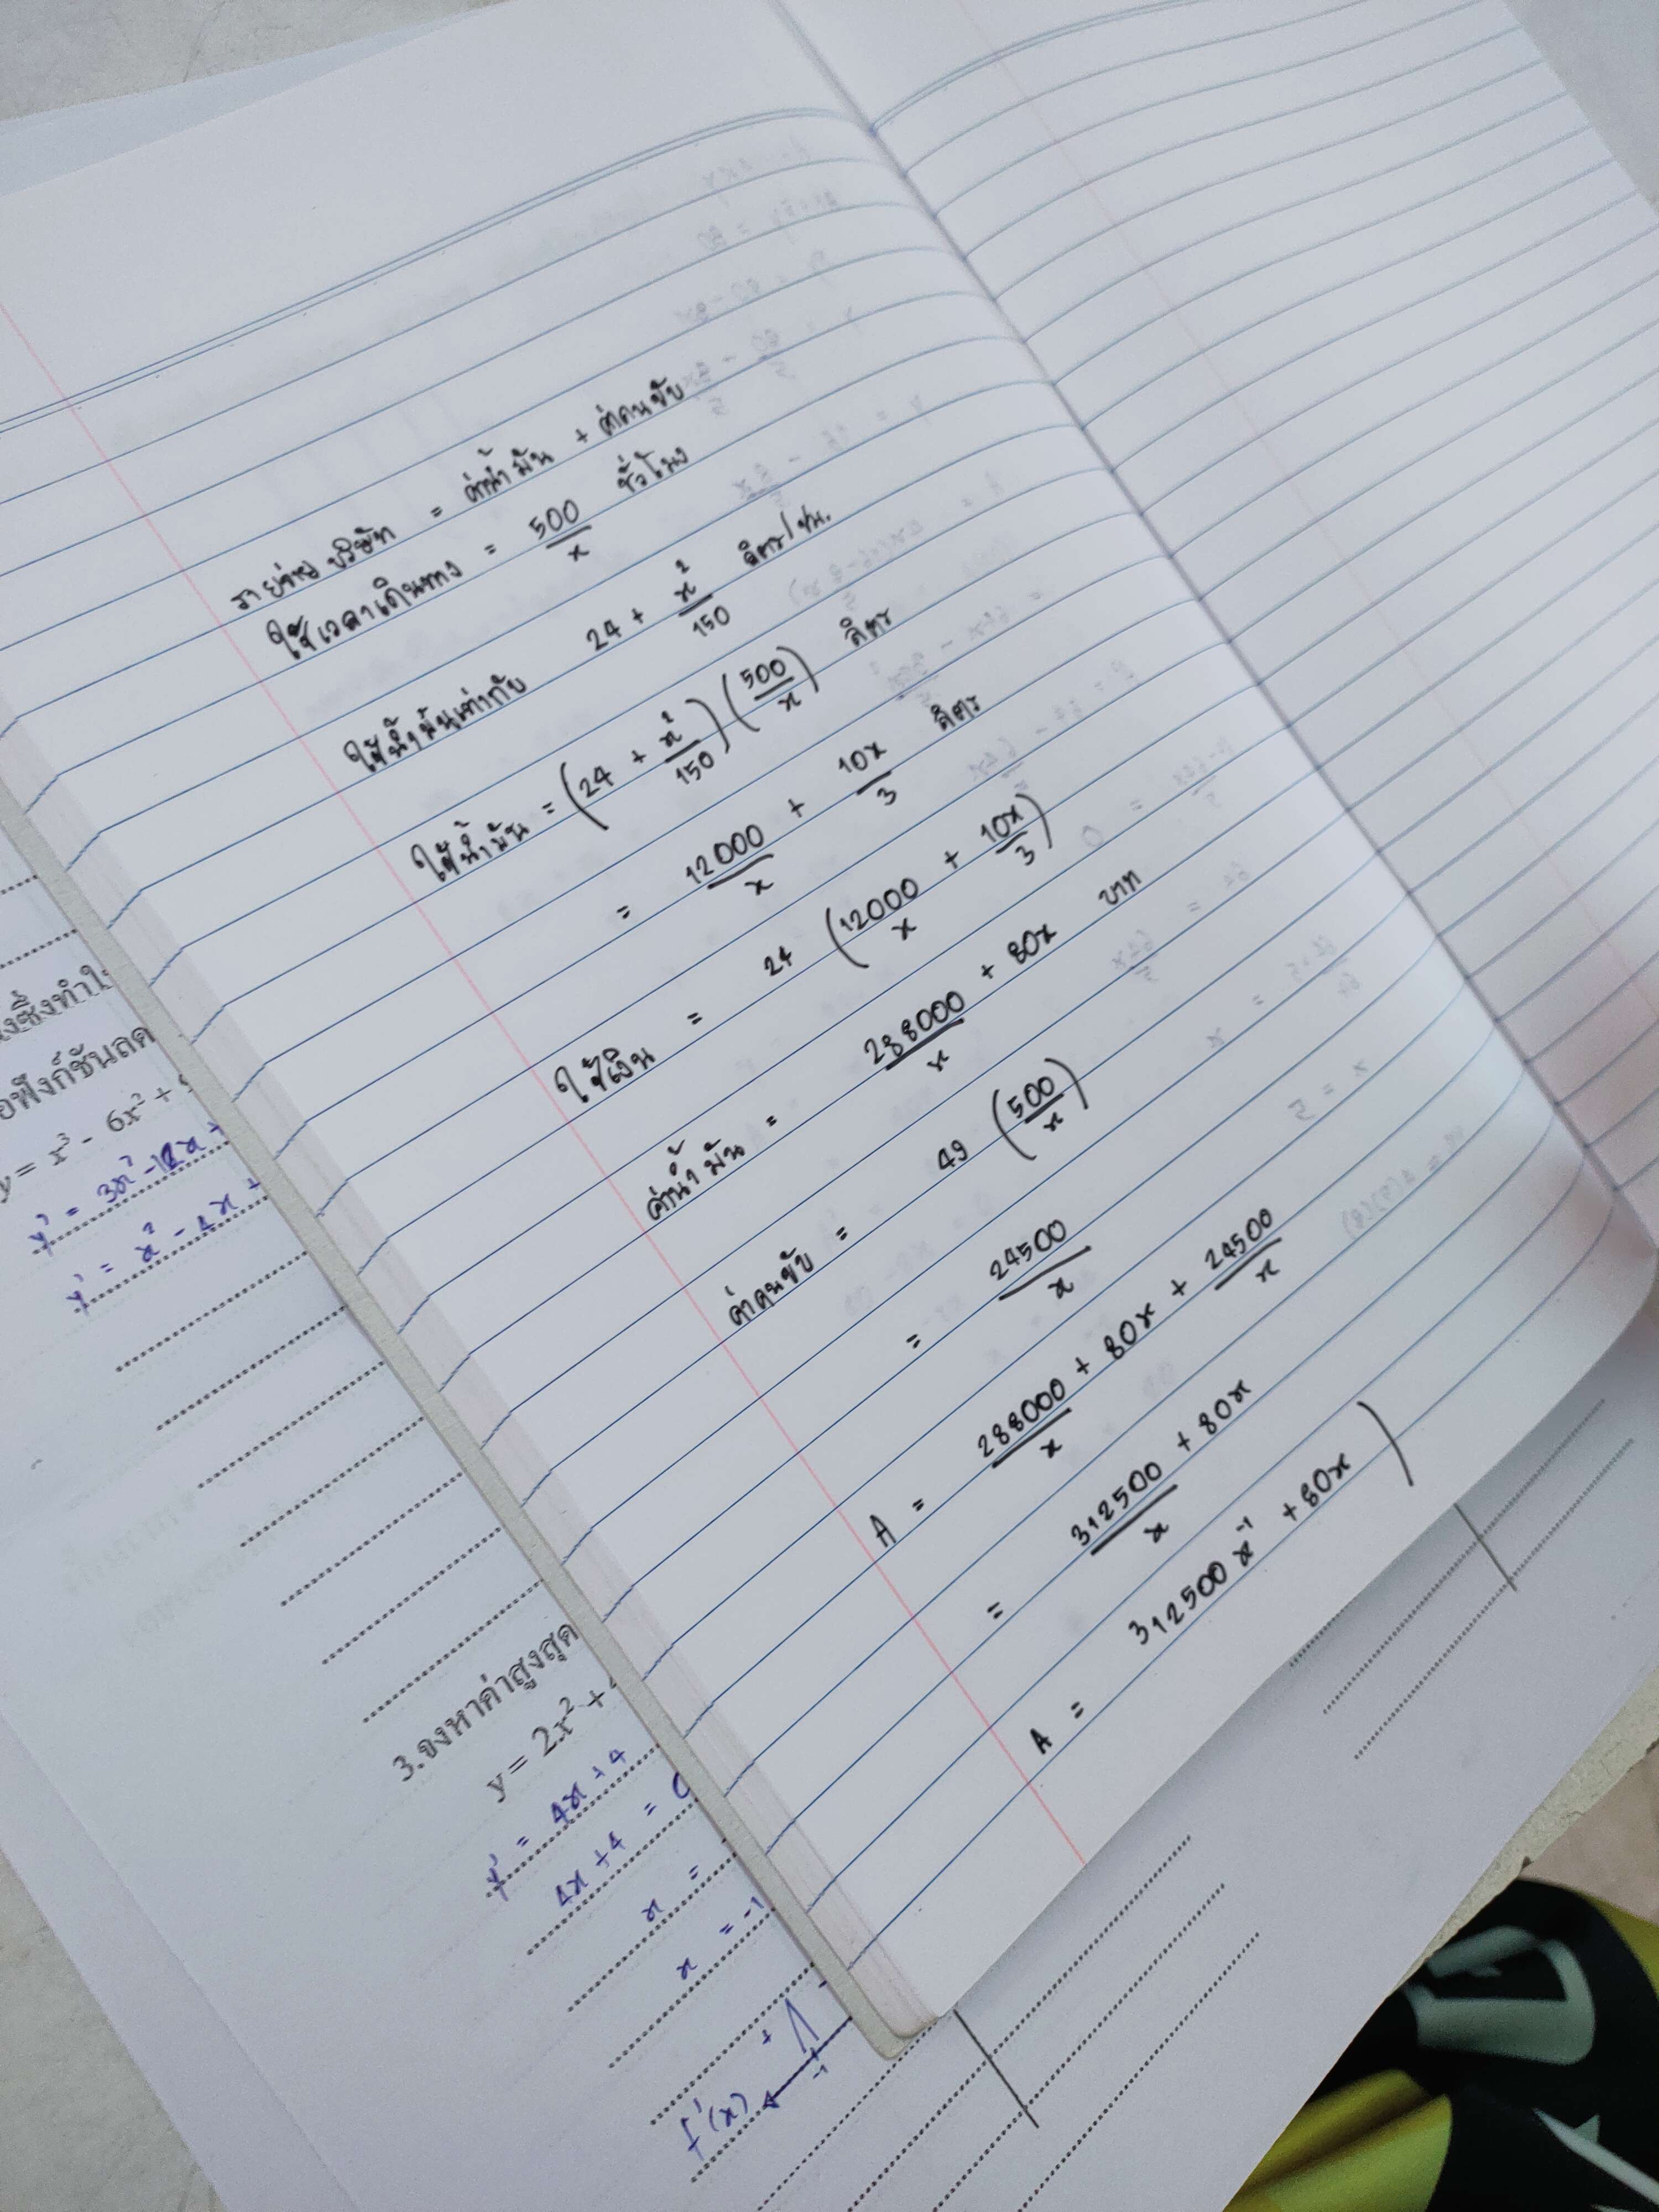 รายจ่ายบริษัท = ค่าน้ำมัน + ค่าคนขับ
ใช้เวลาเดินทาง = 500/x ชั่วโมง
ใช้น้ำมันเท่ากับ 24 + x²/150 ลิตร/ชม.
ใช้น้ำมัน = (24 + x²/150)(500/x) ลิตร
= 12000/x + 10x/3 ลิตร
ใช้เงิน = 24 (12000/x + 10x/3)
ค่าน้ำมัน = 288000/x + 80x บาท
ค่าคนขับ = 49 (500/x)
= 24500/x
A = 288000/x + 80x + 24500/x
= 312500/x + 80x
A = 312500x⁻¹ + 80x )
งซึ่งทำให้
อฟังก์ชันลด
y = x³ - 6x² +
y' = 3x² - 12x +
y' = x² - 4x +
3.จงหาค่าสูงสุด
y = 2x² +
y' = 4x + 4
4x + 4 =
x =
x = -1
f'(x)
-1